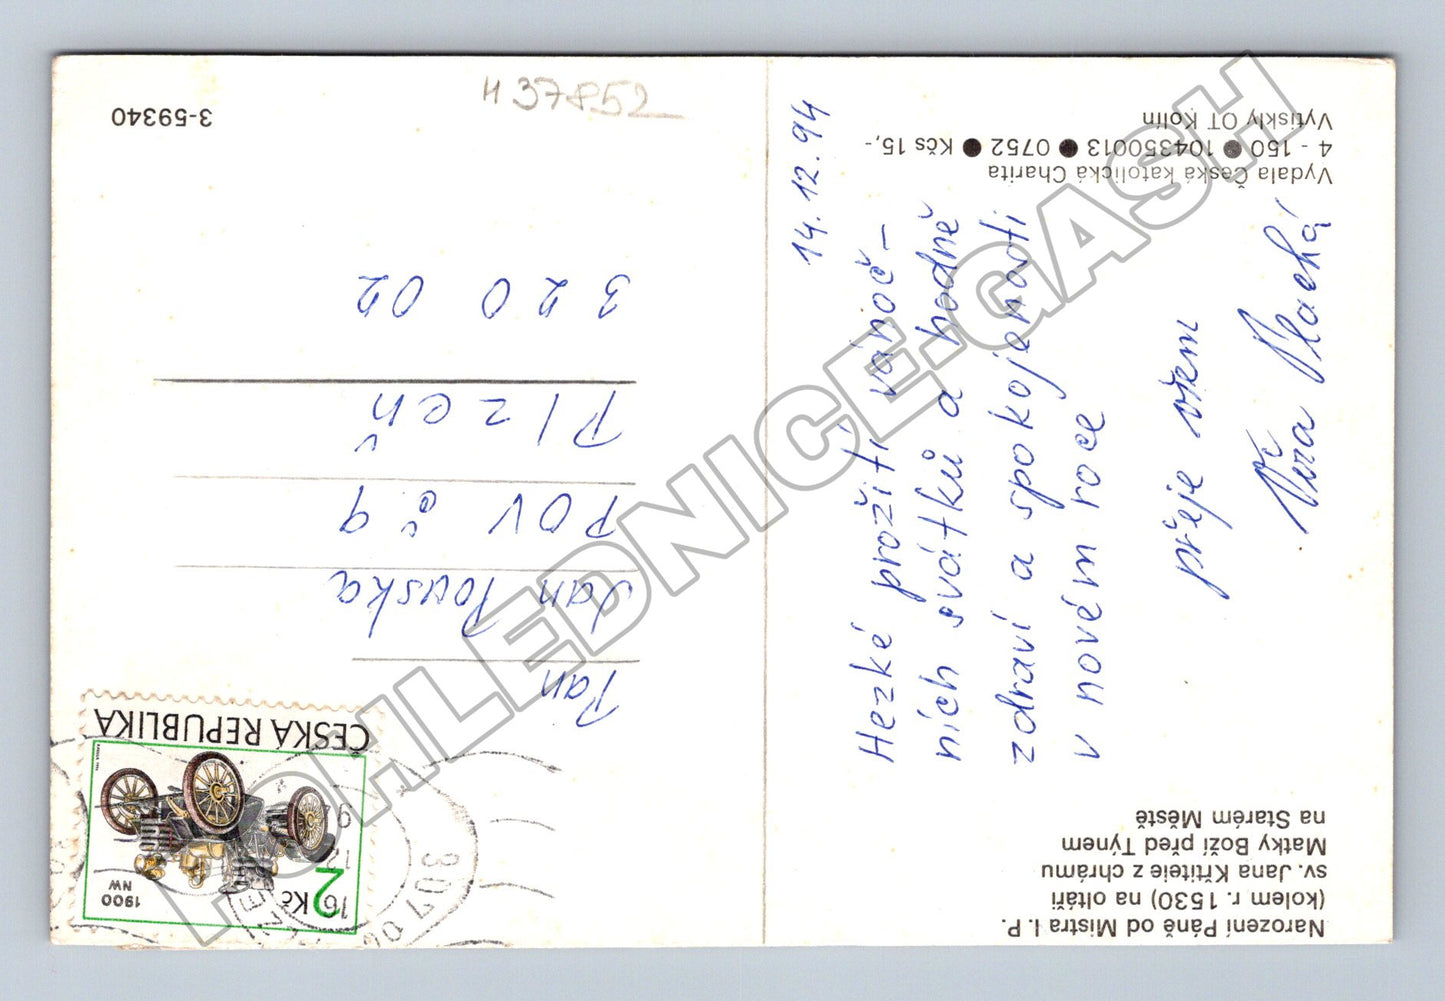 Narození Páně od Mistra I. P.
(kolem r. 1530) na oltáři
sv. Jana Křtitele z chrámu
Matky Boží před Týnem
na Starém Městě
Vydala Česká katolická Charita
4 - 150 ● 104350013 ● 0752 ● Kčs 15,-
Vytiskly OT Kolín
14. 12. 94
Hezké prožití vánoč-
ních svátků a hodně
zdraví a spokojenosti
v novém roce
přeje všem
Věra Plachá
ČESKÁ REPUBLIKA
2 Kč
1900
NW
307 00
Pan
Jan Pouska
POV č. 9
Plzeň
320 02
3-59340
H 37852
POHLEDNICE.GASH